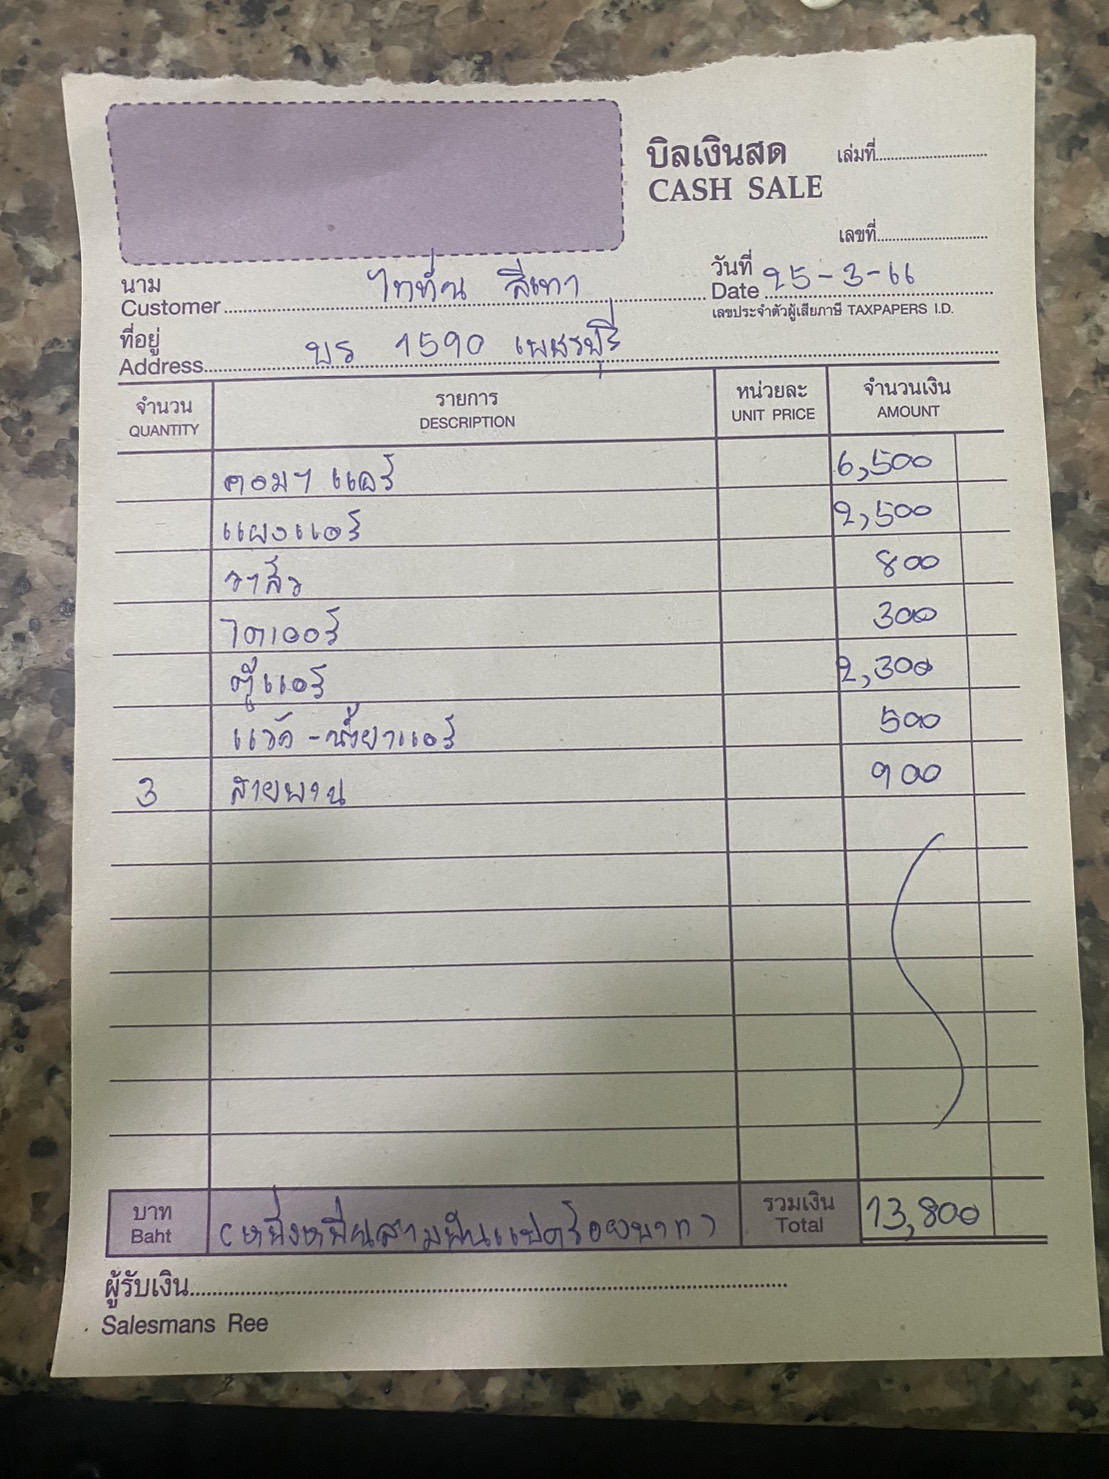 บิลเงินสด
CASH SALE
เล่มที่
เลขที่
นาม
Customer ไททั่น สีเทา
วันที่
Date 25-3-66
เลขประจำตัวผู้เสียภาษี TAXPAPERS I.D.
ที่อยู่
Address บร 1590 เพชรบุรี
จำนวน รายการ หน่วยละ จำนวนเงิน
QUANTITY DESCRIPTION UNIT PRICE AMOUNT
คอมฯ แอร์ 6,500
แผงแอร์ 2,500
วาล์ว 800
ไดเออร์ 300
ตู้แอร์ 2,300
แวค - น้ำยาแอร์ 500
3 สายพาน 900
บาท
Baht (หนึ่งหมื่นสามพันแปดร้อยบาท)
รวมเงิน
Total 13,800
ผู้รับเงิน
Salesmans Ree